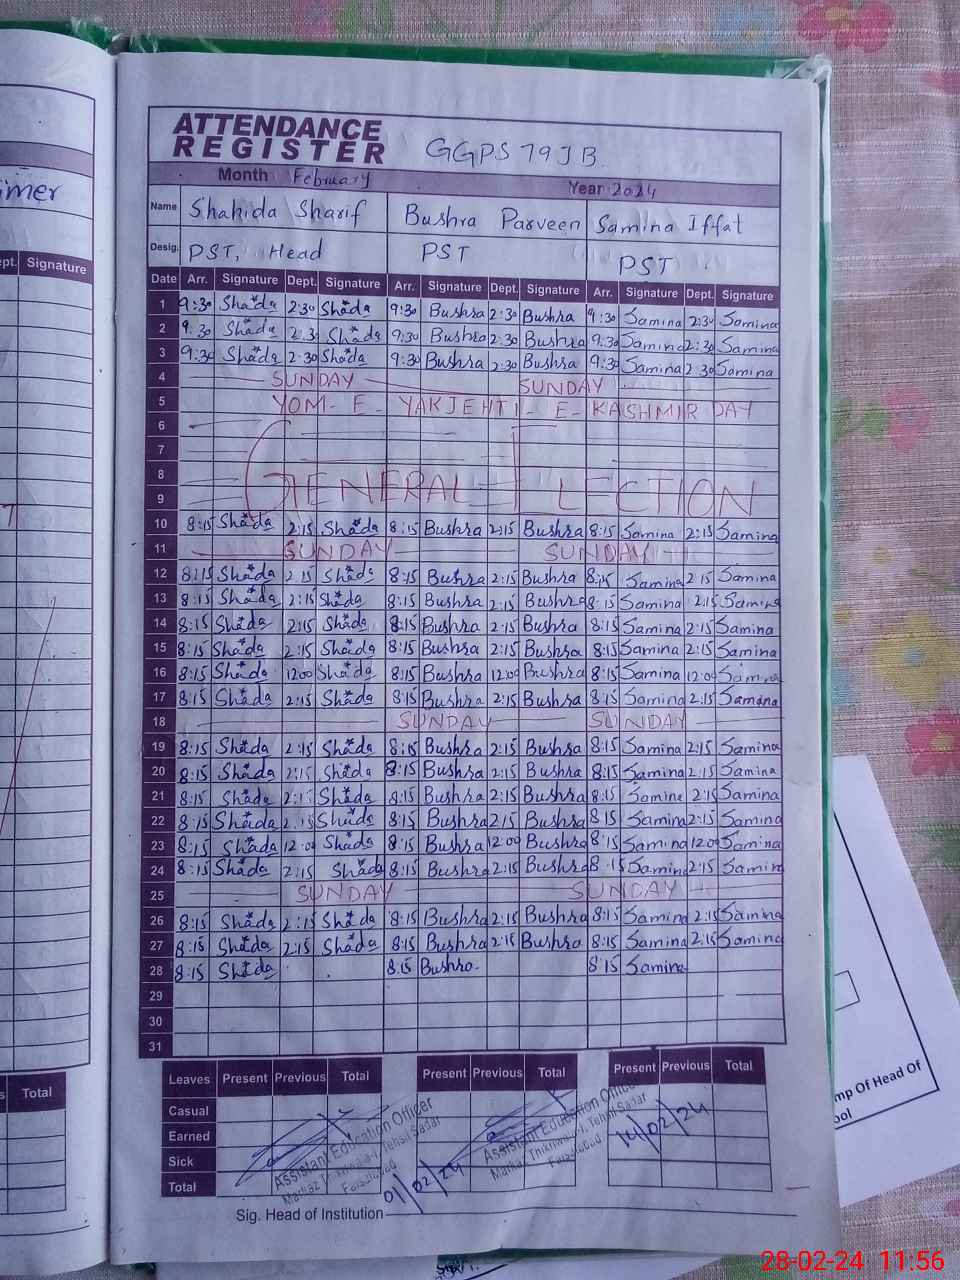 ATTENDANCE
REGISTER GGPS 79 JB
Month February Year 2024
Name Shahida Sharif Bushra Parveen Samina Iffat
Desig. PST, Head PST PST
Date Arr. Signature Dept. Signature Arr. Signature Dept. Signature Arr. Signature Dept. Signature
1 9:30 Shada 2:30 Shada 9:30 Bushra 2:30 Bushra 9:30 Samina 2:30 Samina
2 9:30 Shada 2:30 Shada 9:30 Bushra 2:30 Bushra 9:30 Samina 2:30 Samina
3 9:30 Shada 2:30 Shada 9:30 Bushra 2:30 Bushra 9:30 Samina 2:30 Samina
4 SUNDAY SUNDAY
5 YOM-E-YAKJEHTI-E-KASHMIR DAY
6
7
8 GENERAL ELECTION
9
10 8:15 Shada 2:15 Shada 8:15 Bushra 2:15 Bushra 8:15 Samina 2:15 Samina
11 SUNDAY SUNDAY
12 8:15 Shada 2:15 Shada 8:15 Bushra 2:15 Bushra 8:15 Samina 2:15 Samina
13 8:15 Shada 2:15 Shada 8:15 Bushra 2:15 Bushra 8:15 Samina 2:15 Samina
14 8:15 Shada 2:15 Shada 8:15 Bushra 2:15 Bushra 8:15 Samina 2:15 Samina
15 8:15 Shada 2:15 Shada 8:15 Bushra 2:15 Bushra 8:15 Samina 2:15 Samina
16 8:15 Shada 1200 Shada 8:15 Bushra 12:00 Bushra 8:15 Samina 12:00 Samina
17 8:15 Shada 2:15 Shada 8:15 Bushra 2:15 Bushra 8:15 Samina 2:15 Samina
18 SUNDAY SUNDAY
19 8:15 Shada 2:15 Shada 8:15 Bushra 2:15 Bushra 8:15 Samina 2:15 Samina
20 8:15 Shada 2:15 Shada 8:15 Bushra 2:15 Bushra 8:15 Samina 2:15 Samina
21 8:15 Shada 2:15 Shada 8:15 Bushra 2:15 Bushra 8:15 Samina 2:15 Samina
22 8:15 Shada 2:15 Shada 8:15 Bushra 2:15 Bushra 8:15 Samina 2:15 Samina
23 8:15 Shada 12:00 Shada 8:15 Bushra 12:00 Bushra 8:15 Samina 1200 Samina
24 8:15 Shada 2:15 Shada 8:15 Bushra 2:15 Bushra 8:15 Samina 2:15 Samina
25 SUNDAY SUNDAY
26 8:15 Shada 2:15 Shada 8:15 Bushra 2:15 Bushra 8:15 Samina 2:15 Samina
27 8:15 Shada 2:15 Shada 8:15 Bushra 2:15 Bushra 8:15 Samina 2:15 Samina
28 8:15 Shada 8:15 Bushra 8:15 Samina
29
30
31
Leaves Present Previous Total Present Previous Total Present Previous Total
Casual
Earned
Sick
Total
Assistant Education Officer
Tehsil Sadar
Faisalabad
01/02/24
Assistant Education Officer
Tehsil Sadar
Faisalabad
14/02/24
Sig. Head of Institution
Signature
Total
mp Of Head Of
ool
28-02-24 11:56